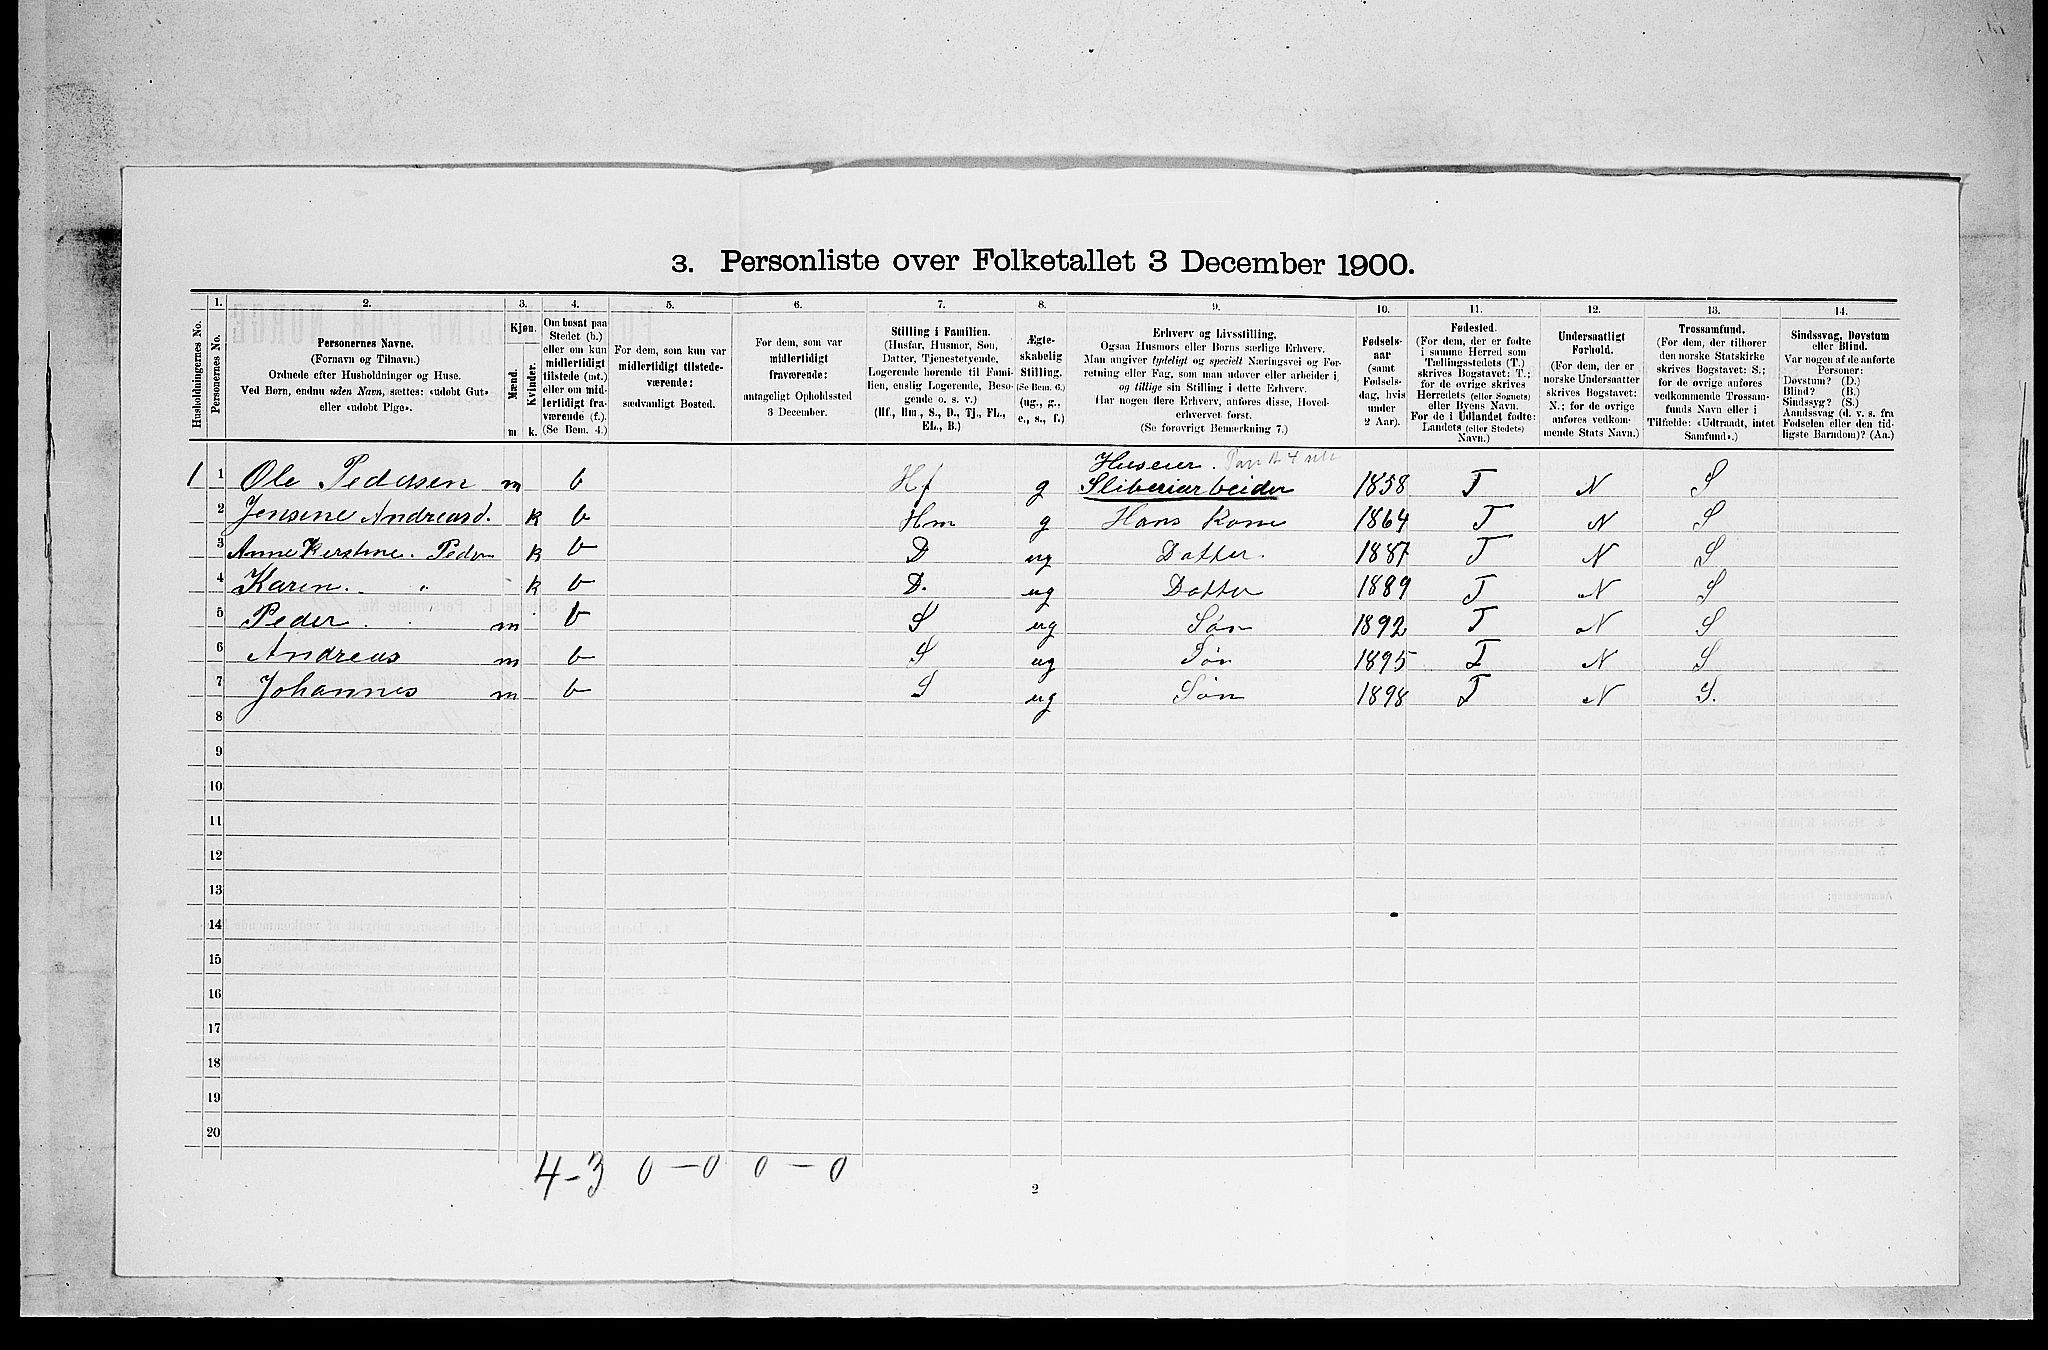 3. Personliste over Folketallet 3 December 1900.
Husholdningernes No.
1.
Personernes No.
2.
Personernes Navne.
(Fornavn og Tilnavn.)
Ordnede efter Husholdninger og Huse.
Ved Børn, endnu uden Navn, sættes: «udøbt Gut»
eller «udøbt Pige».
3.
Kjøn.
Mænd.
m
Kvinder.
k.
4.
Om bosat paa
Stedet (b.)
eller om kun
midlertidigt
tilstede (mt.)
eller om mid-
lertidigt fra-
værende (f.).
(Se Bem. 4.)
5.
For dem, som kun var
midlertidigt tilstede-
værende:
sædvanligt Bosted.
6.
For dem, som var
midlertidigt
fraværende:
antageligt Opholdssted
3 December.
7.
Stilling i Familien.
(Husfar, Husmor, Søn,
Datter, Tjenestetyende,
Logerende hørende til Fami-
lien, enslig Logerende, Besø-
gende o. s. v.)
(Hf., Hm., S., D., Tj., FL.,
EL., B.)
8.
Ægte-
skabelig
Stilling.
(Se Bem. 6.)
(ug., g.,
e., s., f.)
9.
Erhverv og Livsstilling.
Ogsaa Husmors eller Børns særlige Erhverv.
Man angiver tydeligt og specielt Næringsvei og For-
retning eller Fag, som man udøver eller arbeider i,
og tillige sin Stilling i dette Erhverv.
Har nogen flere Erhverv, anføres disse, Hoved-
erhvervet først.
(Se forøvrigt Bemerkning 7.)
10.
Fødsels-
aar
(samt
Fødsels-
dag, hvis
under
2 Aar).
11.
Fødested.
(For dem, der er fødte
i samme Herred som
Tællingsstedets (T.)
skrives Bogstavet: T.;
for de øvrige skrives
Herredets (eller Sognets)
eller Byens Navn.
For de i Udlandet fødte:
Landets (eller Stedets)
Navn.)
12.
Undersaatligt
Forhold.
(For dem, der er
norske Undersaatter
skrives Bogstavet:
N.; for de øvrige
anføres vedkom-
mende Stats Navn.)
13.
Trossamfund.
(For dem, der tilhører
den norske Statskirke
skrives Bogstavet: S.;
for de øvrige anføres
vedkommende Trossam-
funds Navn eller i
Tilfælde: «Udtraadt, intet
Samfund».)
14.
Sindssvag, Døvstum
eller Blind.
Var nogen af de anførte
Personer:
Døvstum? (D.)
Blind? (B.)
Sindssyg? (S.)
Aandssvag (d. v. s. fra
Fødselen eller den tid-
ligste Barndom)? (Aa.)
1 1 Ole Pedersen m b Hf g Huseier. Sliberiarbeider 1858 T N S
2 Jensine Andreasd. k b Hm g Hans Kone 1864 T N S
3 Anne Kerstine. Peder k b D ug Datter. 1887 T N S
4 Karen. " k b D. ug Datter 1889 T N S
5 Peder m b S ug Søn 1892 T N S
6 Andreas m b S ug Søn 1895 T N S
7 Johannes m b S ug Søn 1898 T N S.
8
9
10
11
12
13
14
15
16
17
18
19
20
4-3 0-0 0-0
2